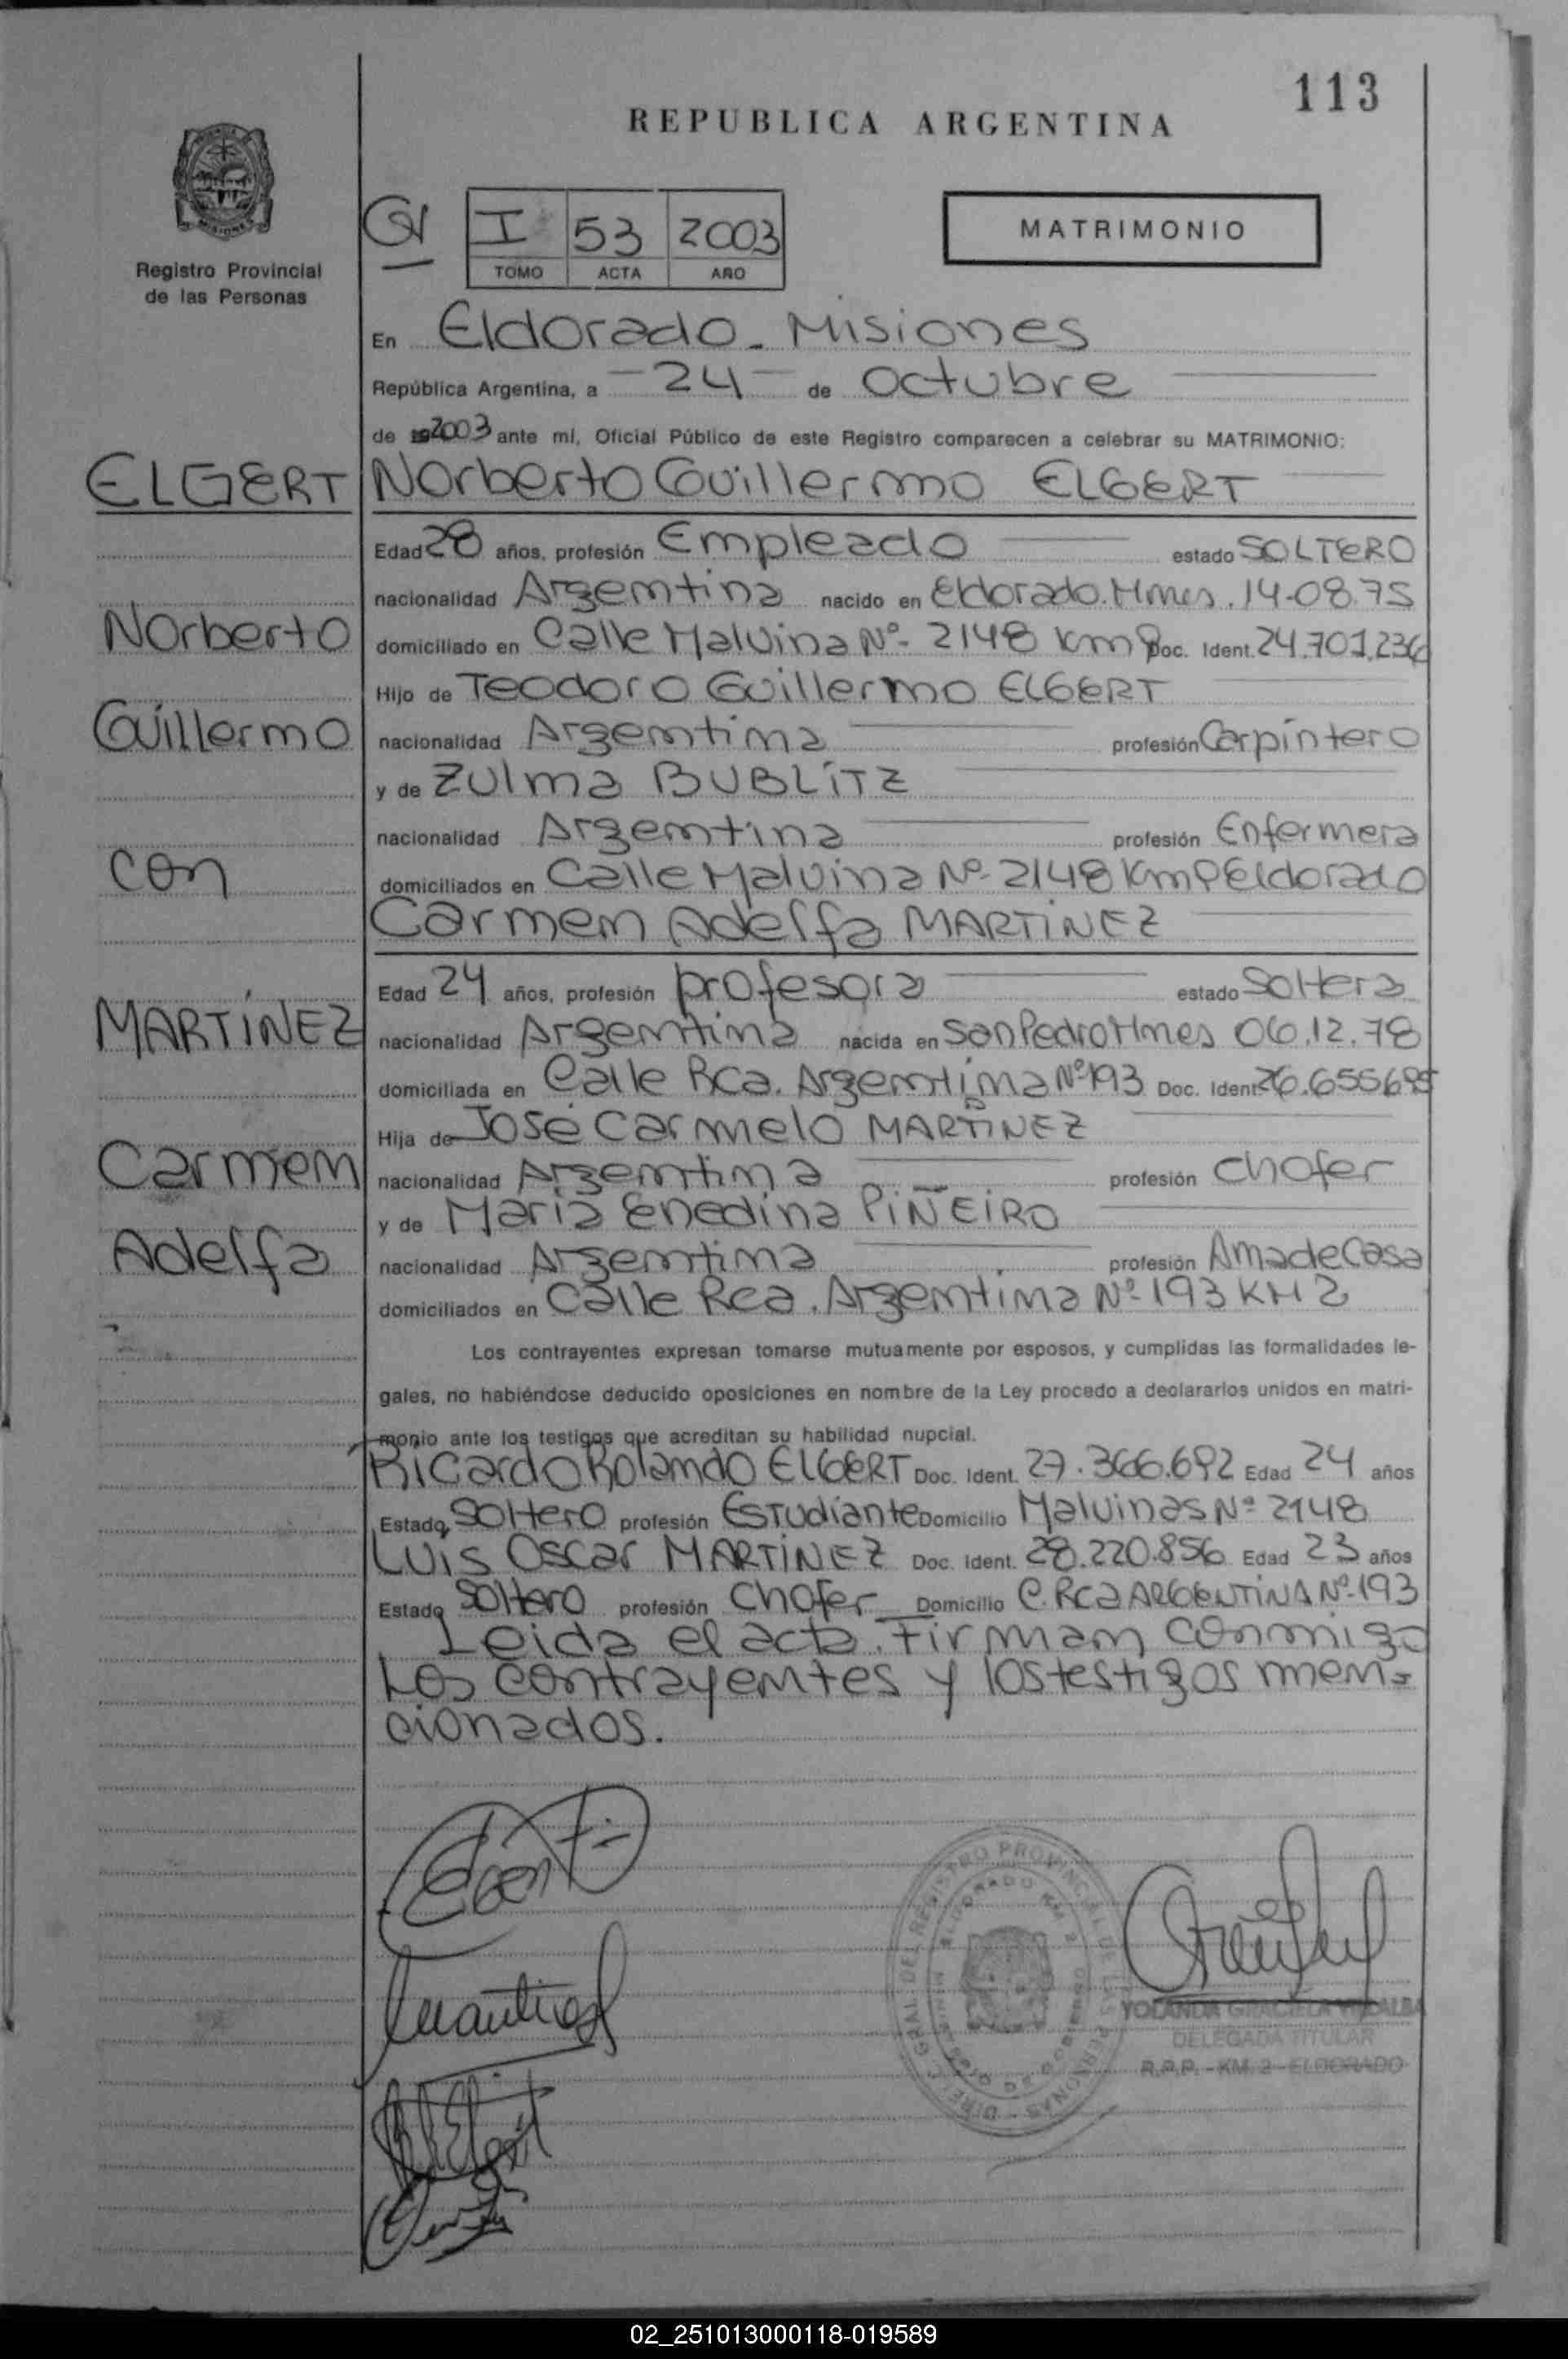 113
REPUBLICA ARGENTINA
MISIONES
Registro Provincial
de las Personas
I 53 2003
TOMO ACTA AÑO
MATRIMONIO
En Eldorado - Misiones
República Argentina, a -24- de Octubre
de 2003 ante mí, Oficial Público de este Registro comparecen a celebrar su MATRIMONIO:
ELGERT
Norberto Guillermo ELGERT
Edad 28 años, profesión Empleado estado SOLTERO
nacionalidad Argentina nacido en Eldorado. Mnes. 14-08.75
Norberto
domiciliado en Calle Malvina Nº- 2148 Km 9 Doc. Ident. 24.701.236
Hijo de Teodoro Guillermo ELGERT
Guillermo
nacionalidad Argentina profesión Carpintero
y de Zulma BUBLITZ
nacionalidad Argentina profesión Enfermera
con
domiciliados en Calle Malvina Nº- 2148 Km 9 Eldorado
Carmen Adelfa MARTÍNEZ
Edad 24 años, profesión profesora estado Soltera
MARTÍNEZ
nacionalidad Argentina nacida en San Pedro Mnes 06.12.78
domiciliada en Calle Rca. Argentina Nº 193 Doc. Ident. 26.655685
Hija de José Carmelo MARTINEZ
Carmen
nacionalidad Argentina profesión Chofer
y de Maria Enedina PIÑEIRO
Adelfa
nacionalidad Argentina profesión Ama de Casa
domiciliados en Calle Rca. Argentina Nº 193 KM 2
Los contrayentes expresan tomarse mutuamente por esposos, y cumplidas las formalidades le-
gales, no habiéndose deducido oposiciones en nombre de la Ley procedo a declararlos unidos en matri-
monio ante los testigos que acreditan su habilidad nupcial.
Ricardo Rolando ELGERT Doc. Ident. 27.366.692 Edad 24 años
Estado Soltero profesión Estudiante Domicilio Malvinas Nº 2148
Luis Oscar MARTÍNEZ Doc. Ident. 28.220.856 Edad 23 años
Estado Soltero profesión Chofer Domicilio C. Rca ARGENTINA Nº-193
Leida el acta. Firman conmigo
Los contrayentes y los testigos men=
cionados.
YOLANDA GRACIELA VILLALBA
DELEGADA TITULAR
R.P.P. - KM. 2 - ELDORADO
02_251013000118-019589